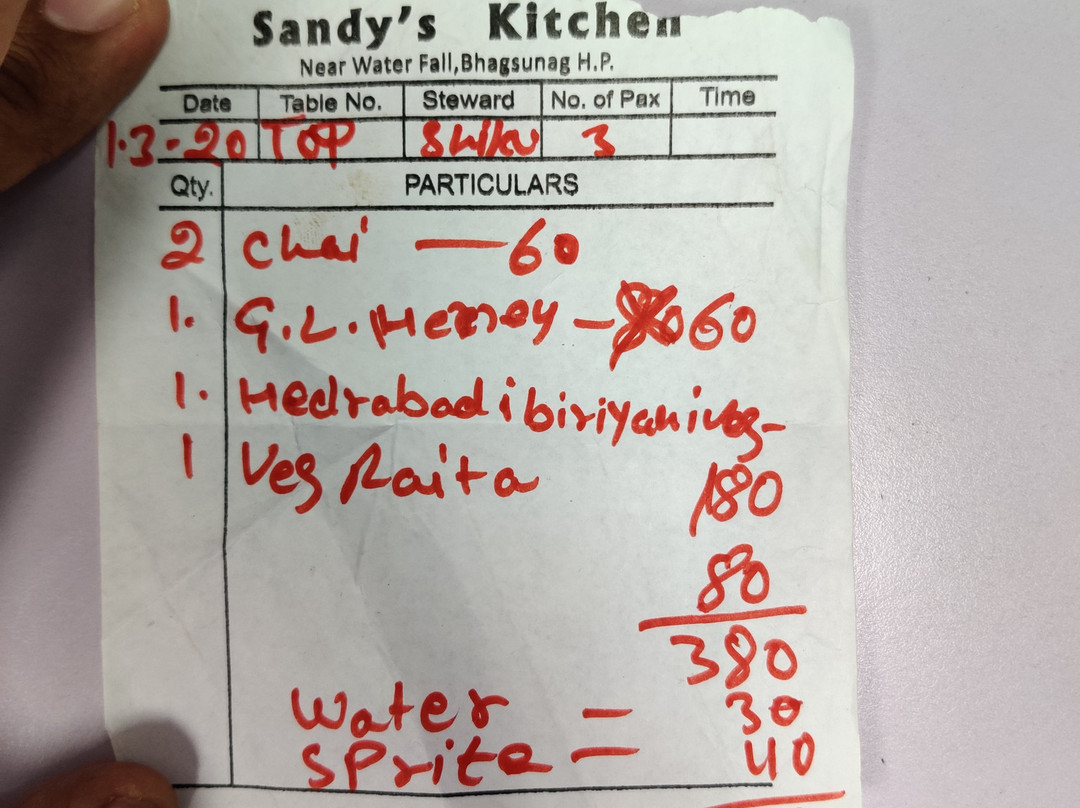 Sandy's Kitchen
Near Water Fall, Bhagsunag H.P.
Date Table No. Steward No. of Pax Time
1.3-20 TOP Shiku 3
Qty. PARTICULARS
2 Chai — 60
1. G.L. Heney - 60
1. Hedrabadi biriyani veg-
1 Veg Raita 180
80
380
Water = 30
SPrite = 40